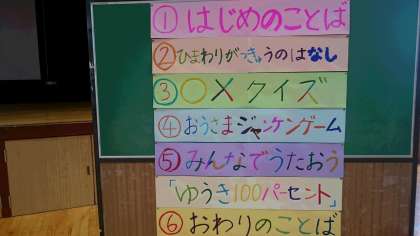 ①はじめのことば
②ひまわりがっきゅうのはなし
③○×クイズ
④おうさまジャンケンゲーム
⑤みんなでうたおう
「ゆうき100パーセント」
⑥おわりのことば